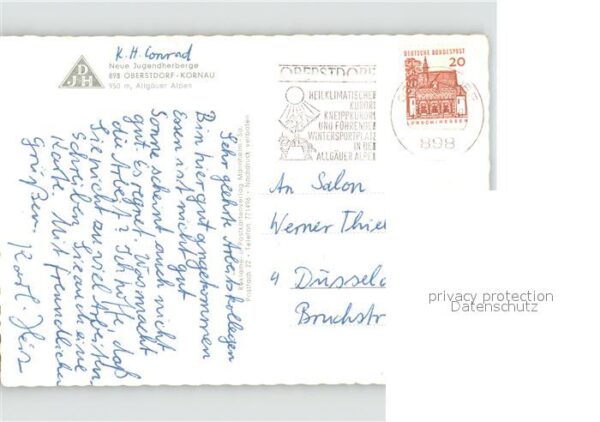 K. H. Conrad
DJH
Neue Jugendherberge
898 OBERSTDORF - KORNAU
950 m, Allgäuer Alpen
Sehr geehrte Arbeitskollegen
Bin hier gut angekommen
Essen ist nicht gut
Sonne scheint auch nicht
gut. Es regnet. Was macht
die Arbeit? Ich hoffe, daß
Sie nicht zu viel Arbeit
Schreiben Sie auch eine
Karte. Mit freundlichen
Grüßen. Karl-Heiz
Postkartenverlag Mannheim
Postfach 22 - Telefon 771496 - Nachdruck verboten
OBERSTDORF
HEILKLIMATISCHER
KURORT
KNEIPPKURORT
UND FÜHRENDER
WINTERSPORTPLATZ
IN DEN
ALLGÄUER ALPEN
DEUTSCHE BUNDESPOST
20
LORSCH/HESSEN
898
An Salon
Werner Thie
4 Düsseld
Bruchstr
privacy protection
Datenschutz